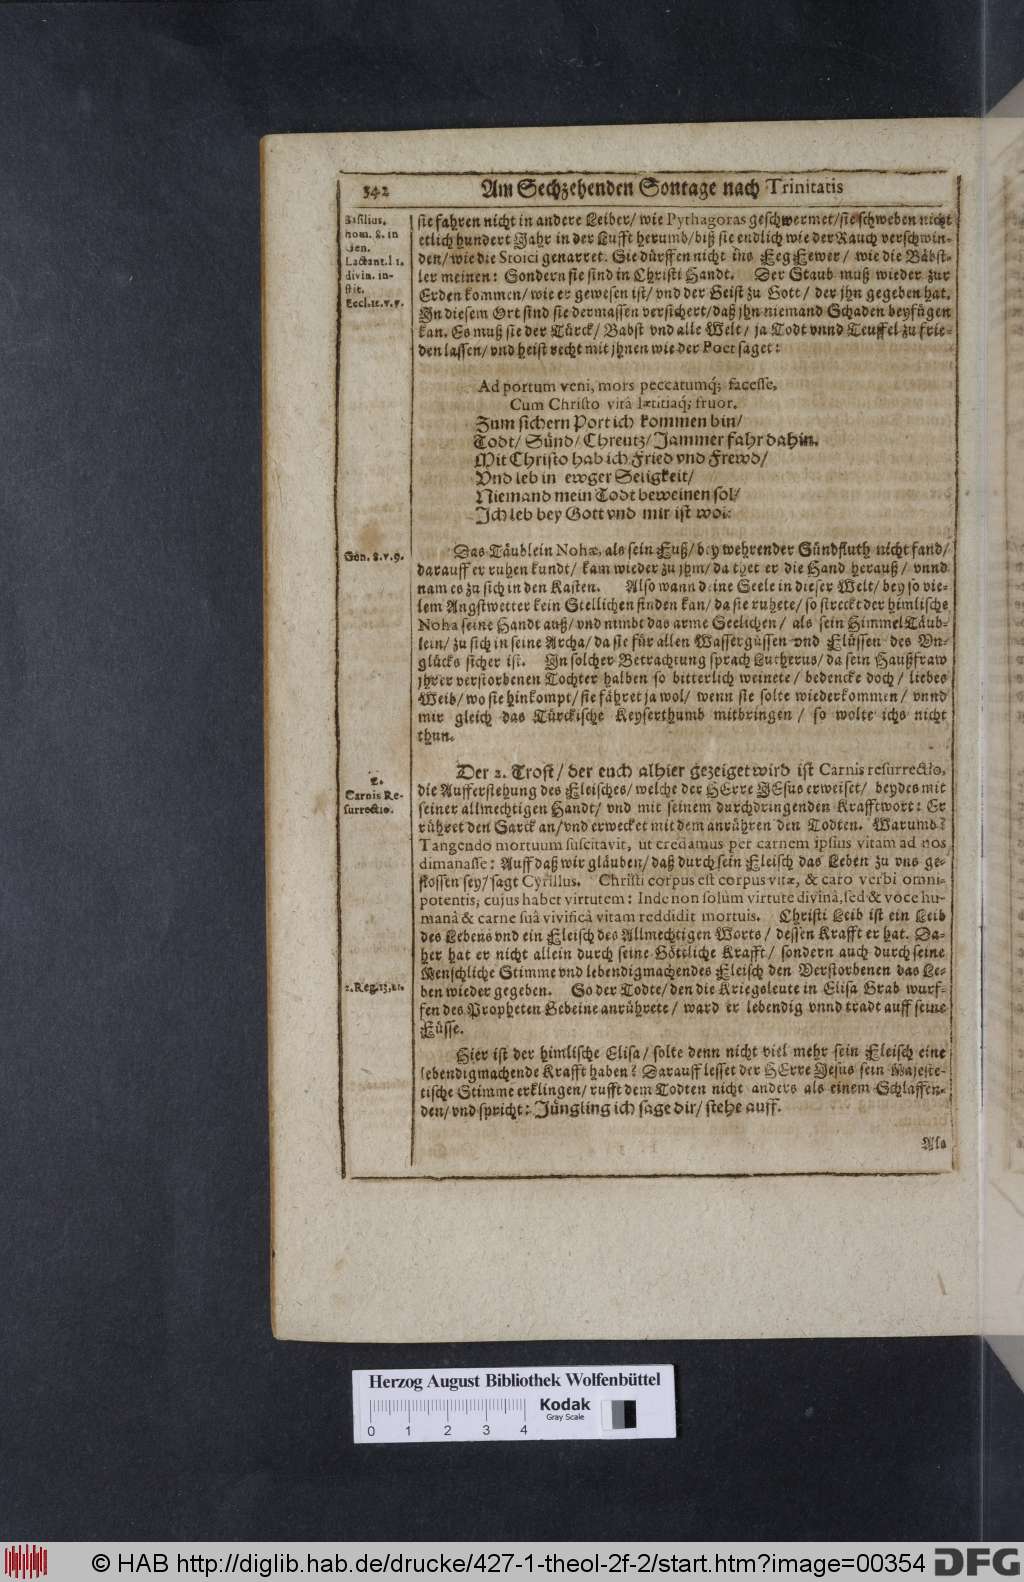 342
Am Sechzehenden Sontage nach Trinitatis
Basilius.
hom. 8. in
Gen.
Lactant. l 1.
divin. in-
stit.
Eccl. 12. v. 7.
sie fahren nicht in andere Leiber/ wie Pythagoras geschwermet/ sie schweben nicht
etlich hundert Jahr in der Lufft herumb/ biß sie endlich wie der Rauch verschwin-
den/ wie die Stoici genarret. Sie dürffen nicht ins FegFewer/ wie die Bäbst-
ler meinen: Sondern sie sind in Christi Handt. Der Staub muß wieder zur
Erden kommen/ wie er gewesen ist/ vnd der Geist zu Gott/ der jhn gegeben hat.
In diesem Ort sind sie dermassen versichert/ daß jhn niemand Schaden beyfügen
kan. Es muß sie der Türck/ Babst vnd alle Welt/ ja Todt vnnd Teuffel zu frie-
den lassen/ vnd heist recht mit jhnen wie der Poet saget:
Ad portum veni, mors peccatumq́; facesse,
Cum Christo vitâ lætitiaq́; fruor.
Zum sichern Port ich kommen bin/
Todt/ Sünd/ Chreutz/ Jammer fahr dahin.
Mit Christo hab ich Fried vnd Frewd/
Vnd leb in ewger Seligkeit/
Niemand mein Todt beweinen sol/
Ich leb bey Gott vnd mir ist wol.
Gen. 8. v. 9.
Das Täublein Nohæ, als sein Fuß/ bey wehrender Sündfluth nicht fand/
darauff er ruhen kundt/ kam wieder zu jhm/ da thet er die Hand herauß/ vnnd
nam es zu sich in den Kasten. Also wann deine Seele in dieser Welt/ bey so vie-
lem Angstwetter kein Stellichen finden kan/ da sie ruhete/ so streckt der himlische
Noha seine Handt auß/ vnd nimbt das arme Seelichen/ als sein HimmelTäub-
lein/ zu sich in seine Archa/ da sie für allen Wassergüssen vnd Flüssen des Vn-
glücks sicher ist. In solcher Betrachtung sprach Lutherus/ da sein Haußfraw
jhrer verstorbenen Tochter halben so bitterlich weinete/ bedencke doch/ liebes
Weib/ wo sie hinkompt/ sie fähret ja wol/ wenn sie solte wiederkommen/ vnnd
mir gleich das Türckische Keyserthumb mitbringen/ so wolte ichs nicht
thun.
2.
Carnis Re-
surrectio.
Der 2. Trost/ der euch alhier gezeiget wird ist Carnis resurrectio,
die Aufferstehung des Fleisches/ welche der HErre JEsus erweiset/ beydes mit
seiner allmechtigen Handt/ vnd mit seinem durchdringenden Krafftwort: Er
rühret den Sarck an/ vnd erwecket mit dem anrühren den Todten. Warumb?
Tangendo mortuum suscitavit, ut credamus per carnem ipsius vitam ad nos
dimanasse: Auff daß wir gläuben/ daß durch sein Fleisch das Leben zu vns ge-
flossen sey/ sagt Cyrillus. Christi corpus est corpus vitæ, & caro verbi omni-
potentis, cujus habet virtutem: Inde non solùm virtute divinâ, sed & voce hu-
manâ & carne suâ vivificâ vitam reddidit mortuis. Christi Leib ist ein Leib
des Lebens vnd ein Fleisch des Allmechtigen Worts/ dessen Krafft er hat. Da-
her hat er nicht allein durch seine Göttliche Krafft/ sondern auch durch seine
Menschliche Stimme vnd lebendigmachendes Fleisch den Verstorbenen das Le-
ben wieder gegeben. So der Todte/ den die Kriegsleute in Elisa Grab wurf-
fen des Propheten Gebeine anrührete/ ward er lebendig vnnd tradt auff seine
Füsse.
2. Reg. 13, 21.
Hier ist der himlische Elisa/ solte denn nicht viel mehr sein Fleisch eine
lebendigmachende Krafft haben? Darauff lesset der HErre Jesus sein Majeste-
tische Stimme erklingen/ rufft dem Todten nicht anders als einem Schlaffen-
den/ vnd spricht: Jüngling ich sage dir/ stehe auff.
Als
Herzog August Bibliothek Wolfenbüttel
Kodak
Gray Scale
0 1 2 3 4
© HAB http://diglib.hab.de/drucke/427-1-theol-2f-2/start.htm?image=00354
DFG